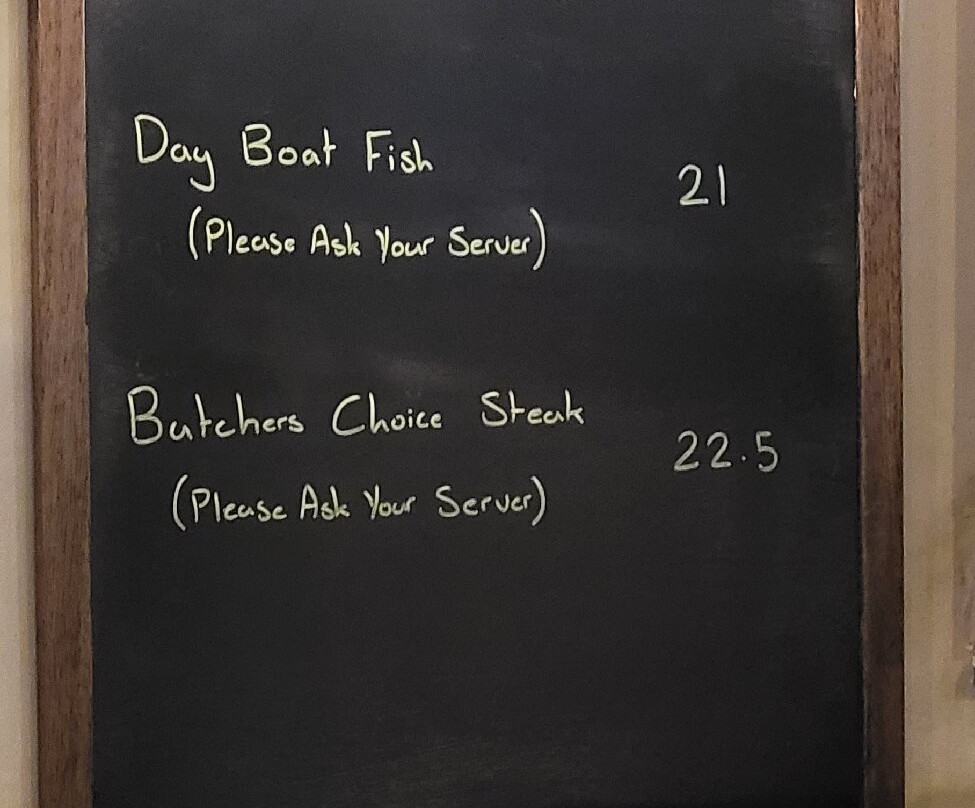 Day Boat Fish
(Please Ask Your Server)
21
Butchers Choice Steak
(Please Ask Your Server)
22.5